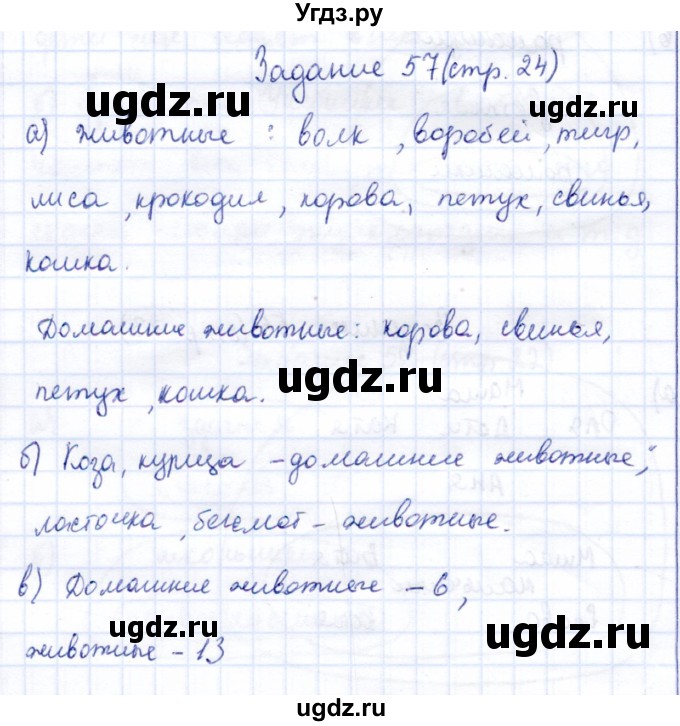 Угдз.ру
Задание 57(стр. 24)
ugdz.ru ugdz.ru
а) животные : волк , воробей, тигр,
лиса, крокодил, корова, петух, свинья,
кошка.
Домашние животные: корова, свинья,
ugdz.ru
петух, кошка.
б) Коза, курица – домашние животные;
ласточка, бегемот – животные.
ugdz.ru
в) Домашние животные – 6,
ugdz.ru
животные – 13
ugdz.ru